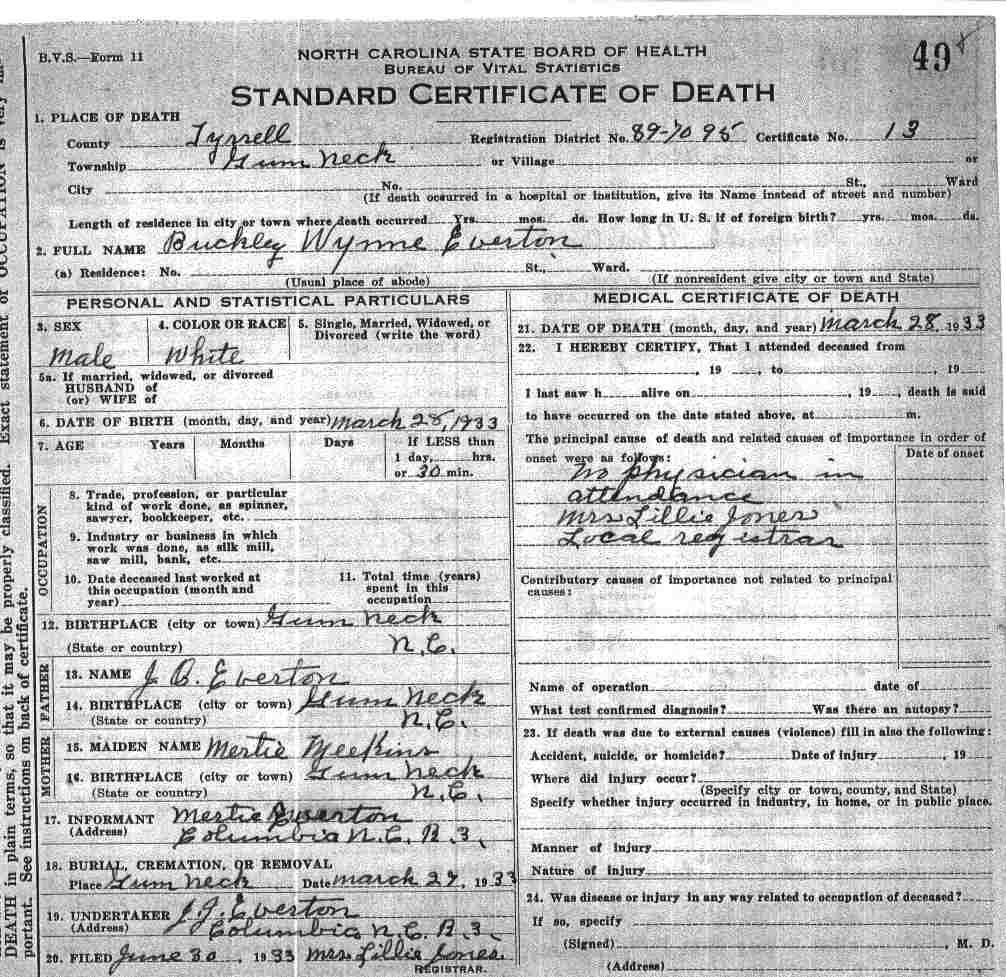 B.V.S.—Form 11
NORTH CAROLINA STATE BOARD OF HEALTH
BUREAU OF VITAL STATISTICS
49
STANDARD CERTIFICATE OF DEATH
1. PLACE OF DEATH
County Tyrrell Registration District No. 89-7095 Certificate No. 13
Township Gum Neck or Village or
City No. St., Ward
(If death occurred in a hospital or institution, give its Name instead of street and number)
Length of residence in city or town where death occurred Yrs. mos. ds. How long in U. S. if of foreign birth? yrs. mos. ds.
2. FULL NAME Buckley Wynne Everton
(a) Residence: No. St., Ward.
(Usual place of abode) (If nonresident give city or town and State)
PERSONAL AND STATISTICAL PARTICULARS
3. SEX 4. COLOR OR RACE 5. Single, Married, Widowed, or
Divorced (write the word)
Male White
5a. If married, widowed, or divorced
HUSBAND of
(or) WIFE of
6. DATE OF BIRTH (month, day, and year) March 28, 1933
7. AGE Years Months Days If LESS than
1 day, hrs.
or 30 min.
OCCUPATION
8. Trade, profession, or particular
kind of work done, as spinner,
sawyer, bookkeeper, etc.
9. Industry or business in which
work was done, as silk mill,
saw mill, bank, etc.
10. Date deceased last worked at
this occupation (month and
year)
11. Total time (years)
spent in this
occupation
12. BIRTHPLACE (city or town) Gum Neck
(State or country) N.C.
FATHER
13. NAME J. B. Everton
14. BIRTHPLACE (city or town) Gum Neck
(State or country) N.C.
MOTHER
15. MAIDEN NAME Mertie Meekins
16. BIRTHPLACE (city or town) Gum Neck
(State or country) N.C.
17. INFORMANT Mertie Everton
(Address) Columbia N.C. R.3.
18. BURIAL, CREMATION, OR REMOVAL
Place Gum Neck Date March 29, 1933
19. UNDERTAKER J. J. Everton
(Address) Columbia N.C. R.3.
20. FILED June 30, 1933 Mrs Lillie Jones
REGISTRAR.
MEDICAL CERTIFICATE OF DEATH
21. DATE OF DEATH (month, day, and year) March 28, 1933
22. I HEREBY CERTIFY, That I attended deceased from
, 19 , to , 19
I last saw h alive on , 19 , death is said
to have occurred on the date stated above, at m.
The principal cause of death and related causes of importance in order of
onset were as follows: Date of onset
No physician in
attendance
Mrs Lillie Jones
Local registrar
Contributory causes of importance not related to principal
causes:
Name of operation date of
What test confirmed diagnosis? Was there an autopsy?
23. If death was due to external causes (violence) fill in also the following:
Accident, suicide, or homicide? Date of injury , 19
Where did injury occur?
(Specify city or town, county, and State)
Specify whether injury occurred in industry, in home, or in public place.
Manner of injury
Nature of injury
24. Was disease or injury in any way related to occupation of deceased?
If so, specify
(Signed) , M. D.
(Address)
DEATH in plain terms, so that it may be properly classified. Exact statement of OCCUPATION is very
portant. See instructions on back of certificate.